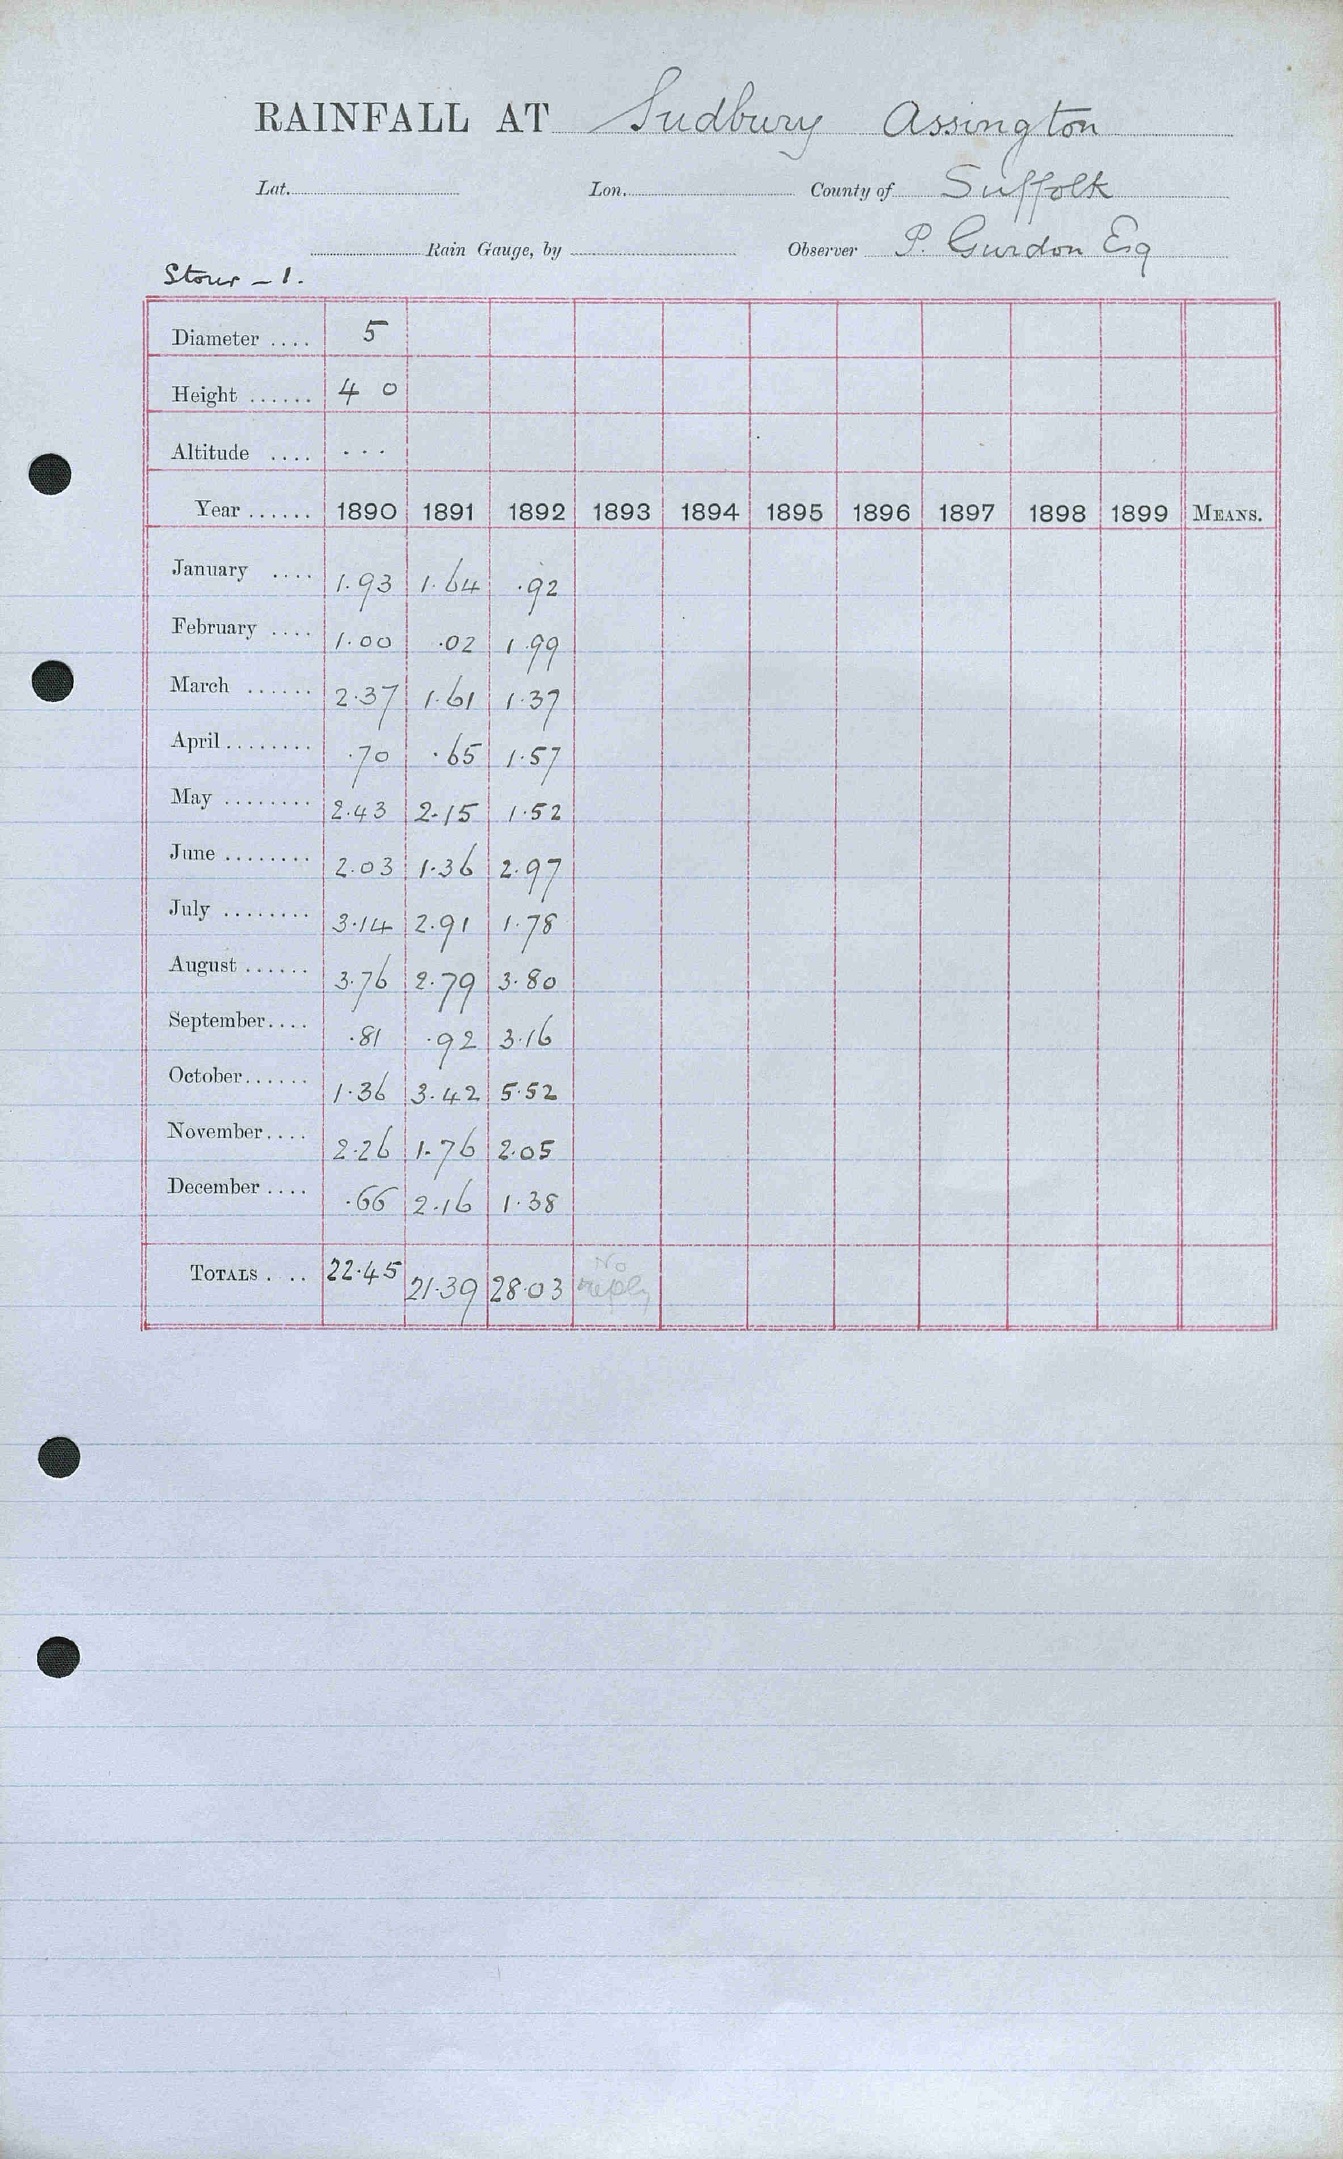 RAINFALL AT Sudbury Assington
Lat. Lon. County of Suffolk
Rain Gauge, by Observer P. Gurdon Esq
Stour - 1.
Diameter .... 5
Height ...... 4 0
Altitude .... ...
Year ...... 1890 1891 1892 1893 1894 1895 1896 1897 1898 1899 MEANS.
January .... 1.93 1.64 .92
February .... 1.00 .02 1.99
March ...... 2.37 1.61 1.37
April ........ .70 .65 1.57
May ........ 2.43 2.15 1.52
June ........ 2.03 1.36 2.97
July ........ 3.14 2.91 1.78
August ...... 3.76 2.79 3.80
September .... .81 .92 3.16
October ...... 1.36 3.42 5.52
November .... 2.26 1.76 2.05
December .... .66 2.16 1.38
TOTALS . .. 22.45 21.39 28.03 No reply